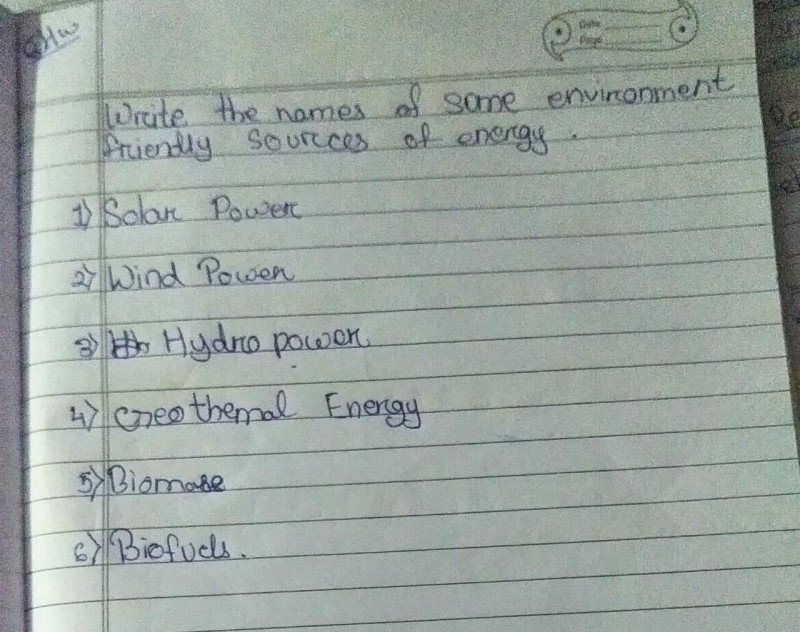 HW
Date
Page
Write the names of some environment
friendly sources of energy.
1) Solar Power
2) Wind Power
3) Hydro power
4) Geothemal Energy
5) Biomase
6) Biofuels.